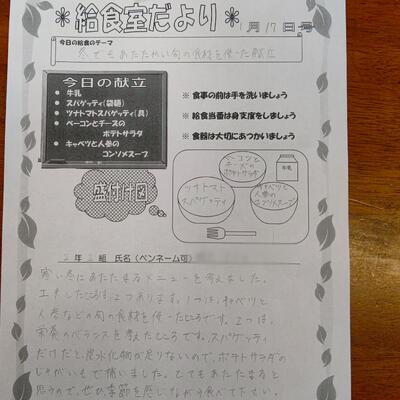 ＊給食室だより＊
1月17日号
今日の給食のテーマ
冬でもあたたかい旬の食材を使った献立
今日の献立
● 牛乳
● スパゲッティ(袋麺)
● ツナトマトスパゲッティ(具)
● ベーコンとチーズの
ポテトサラダ
● キャベツと人参の
コンソメスープ
※ 食事の前は手を洗いましょう
※ 給食当番は身支度をしましょう
※ 食器は大切にあつかいましょう
盛付け図
ベーコンと
チーズの
ポテトサラダ
牛乳
ツナトマト
スパゲッティ
キャベツと
人参の
コンソメスープ
2年2組 氏名(ペンネーム可)
寒い冬にあたたまるメニューを考えました。
工夫したところは、2つあります。1つは、キャベツと
人参などの旬の食材を使ったところです。2つは、
栄養のバランスを考えたところです。スパゲッティ
だけだと、炭水化物が足りないので、ポテトサラダの
じゃがいもで補いました。とてもあたたまると
思うので、ぜひ季節を感じながら食べて下さい。